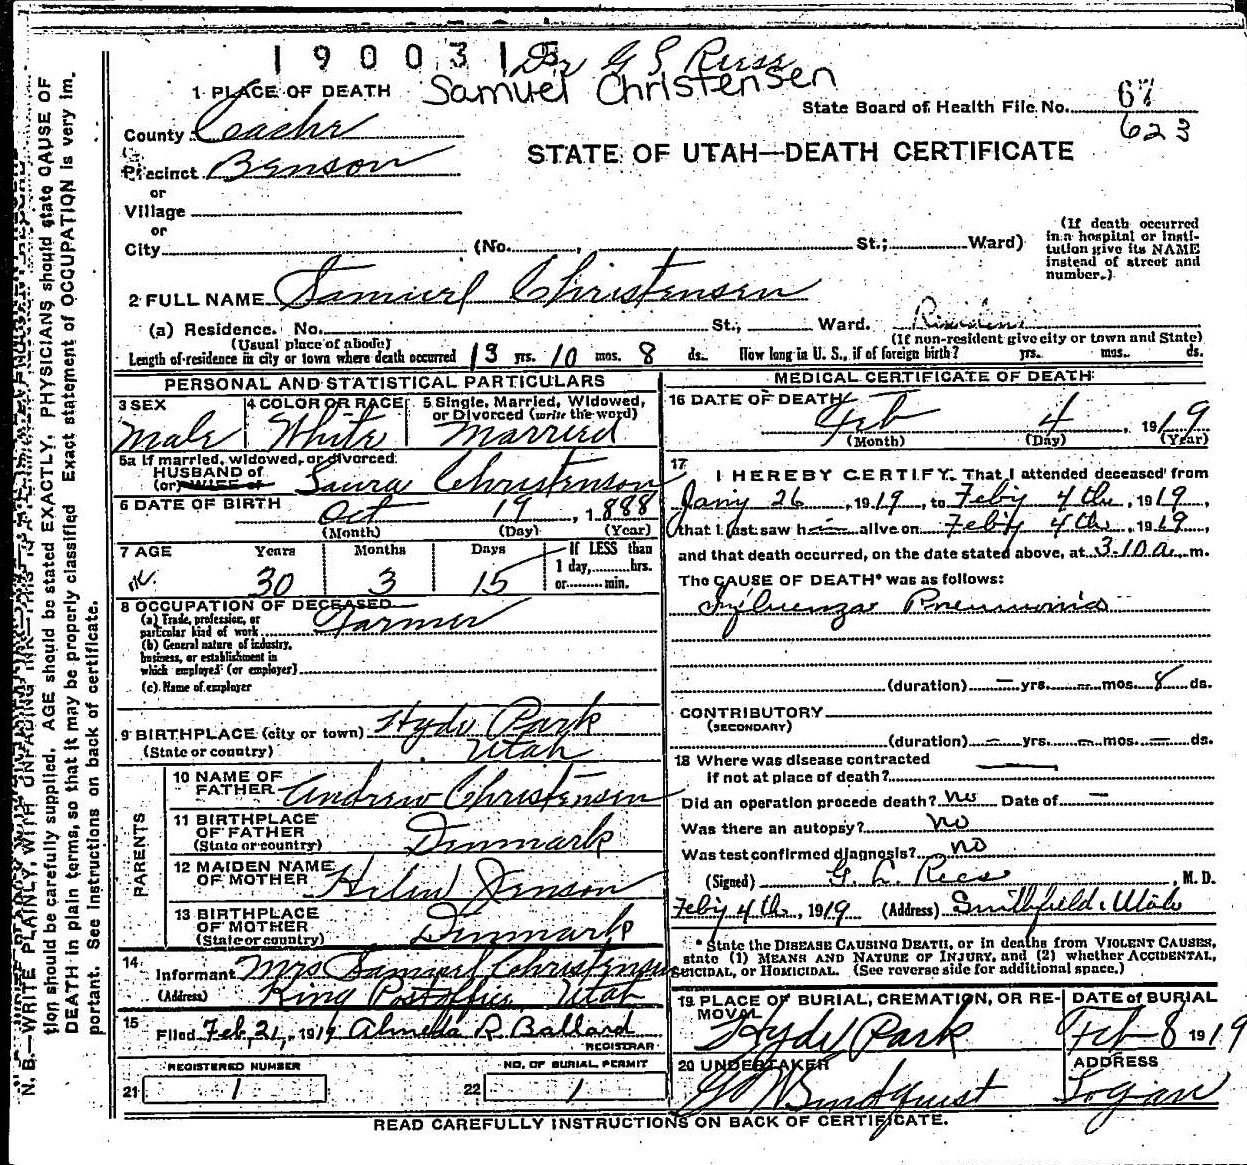 1900315 Dr G S Rees
Samuel Christensen
1 PLACE OF DEATH
State Board of Health File No. 67
623
County Cache
STATE OF UTAH—DEATH CERTIFICATE
Precinct Benson
or
Village
or
City (No. , St.; Ward)
(If death occurred in a hospital or insti-
tution give its NAME
instead of street and
number.)
2 FULL NAME Samuel Christensen
(a) Residence. No. St., Ward. Resident
(Usual place of abode) (If non-resident give city or town and State)
Length of residence in city or town where death occurred 13 yrs. 10 mos. 8 ds. How long in U. S., if of foreign birth? yrs. mos. ds.
PERSONAL AND STATISTICAL PARTICULARS
3 SEX Male
4 COLOR OR RACE White
5 Single, Married, Widowed,
or Divorced (write the word)
Married
5a If married, widowed, or divorced
HUSBAND of
(or) WIFE of Laura Christenson
6 DATE OF BIRTH Oct 19, 1888
(Month) (Day) (Year)
7 AGE Years Months Days If LESS than
1 day, hrs.
30 3 15 or min.
8 OCCUPATION OF DECEASED
(a) Trade, profession, or
particular kind of work Farmer
(b) General nature of industry,
business, or establishment in
which employed (or employer)
(c) Name of employer
9 BIRTHPLACE (city or town) Hyde Park
(State or country) Utah
PARENTS
10 NAME OF
FATHER Andrew Christensen
11 BIRTHPLACE
OF FATHER
(State or country) Denmark
12 MAIDEN NAME
OF MOTHER Jenson
13 BIRTHPLACE
OF MOTHER
(State or country) Denmark
14 Informant Mrs Samuel Christensen
(Address) King Postoffice Utah
15 Filed Feb, 21, 1919 Almeda R. Ballard
REGISTRAR
REGISTERED NUMBER
21 1
NO. OF BURIAL PERMIT
22 1
MEDICAL CERTIFICATE OF DEATH
16 DATE OF DEATH
Feb 4, 1919
(Month) (Day) (Year)
17 I HEREBY CERTIFY, That I attended deceased from
Jany 26, 1919, to Feby 4th, 1919,
that I last saw h alive on Feby 4th, 1919,
and that death occurred, on the date stated above, at 3-10 a. m.
The CAUSE OF DEATH* was as follows:
Influenza Pneumonia
(duration) – yrs. – mos. 8 ds.
CONTRIBUTORY
(SECONDARY)
(duration) – yrs. – mos. – ds.
18 Where was disease contracted
if not at place of death?
Did an operation precede death? No Date of –
Was there an autopsy? No
Was test confirmed diagnosis? no
(Signed) G. L. Rees, M. D.
Feby 4th, 1919 (Address) Smithfield, Utah
*State the DISEASE CAUSING DEATH, or in deaths from VIOLENT CAUSES,
state (1) MEANS AND NATURE OF INJURY, and (2) whether ACCIDENTAL,
SUICIDAL, OR HOMICIDAL. (See reverse side for additional space.)
19 PLACE OF BURIAL, CREMATION, OR RE-
MOVAL
Hyde Park
DATE of BURIAL
Feb 8 1919
20 UNDERTAKER
ADDRESS
Logan
READ CAREFULLY INSTRUCTIONS ON BACK OF CERTIFICATE.
N. B.—WRITE PLAINLY, WITH UNFADING INK—THIS IS A
tion should be carefully supplied. AGE should be stated EXACTLY. PHYSICIANS should state CAUSE OF
DEATH in plain terms, so that it may be properly classified. Exact statement of OCCUPATION is very im-
portant. See instructions on back of certificate.